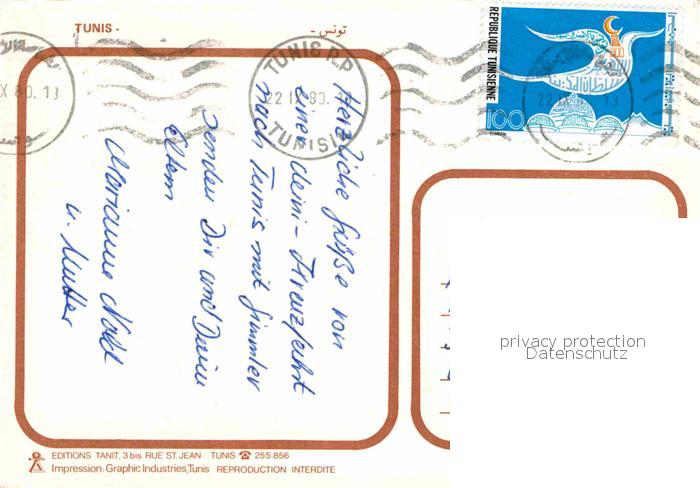 TUNIS -
- تونس
TUNIS R.P
22 IX 80.
TUNIS
IX 80. 13
REPUBLIQUE TUNISIENNE
100
Herzliche Grüße von
einer Mini-Kreuzfahrt
nach Tunis mit
senden Dir und Deinen
Eltern
Marianne
u. Mutter
privacy protection
Datenschutz
EDITIONS TANIT, 3 bis RUE ST. JEAN TUNIS ☎ 255 856
Impression: Graphic Industries, Tunis REPRODUCTION INTERDITE